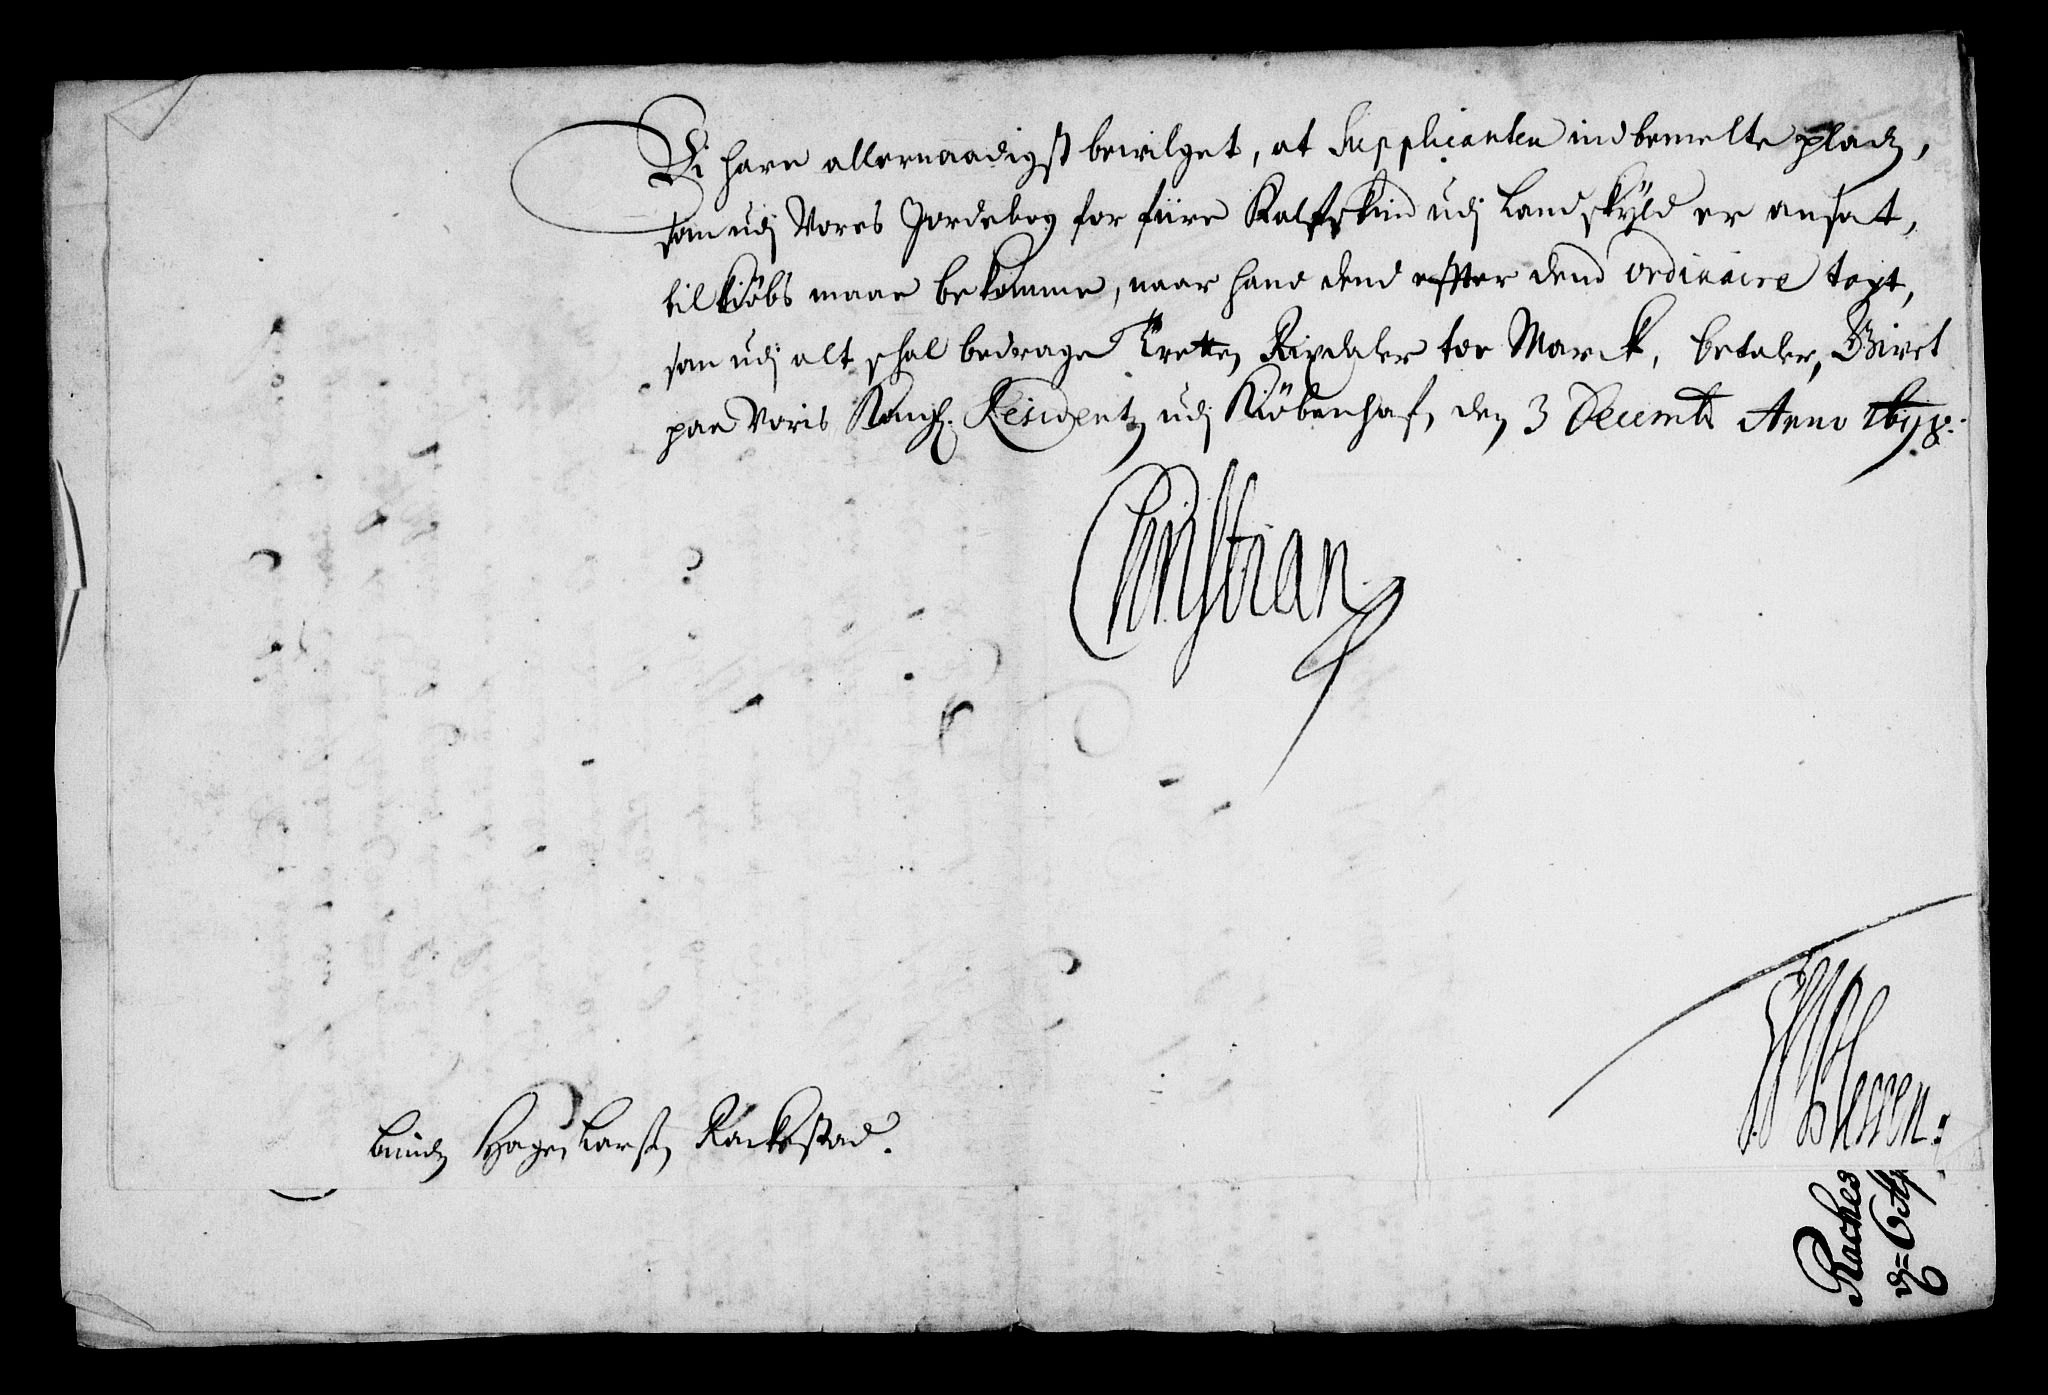 Vi have allernaadigst bevilget, at Supplicanten indbemelte pladz,
som udj Vores Jordebog for fiire Kalfskind udj Landskÿld er ansat,
til kiøbs maae bekomme, naar hand dend effter dend ordinaire taxt,
som udj alt schal bedrage Tretten Rixdaler toe Marck, betaler, Givet
paa Voris Kongl. Residentz udj Kiöbenhafn, den 3 Decemb. Anno 1698.
Christian
Plessen.
Lars: Rackestad.
Rackes